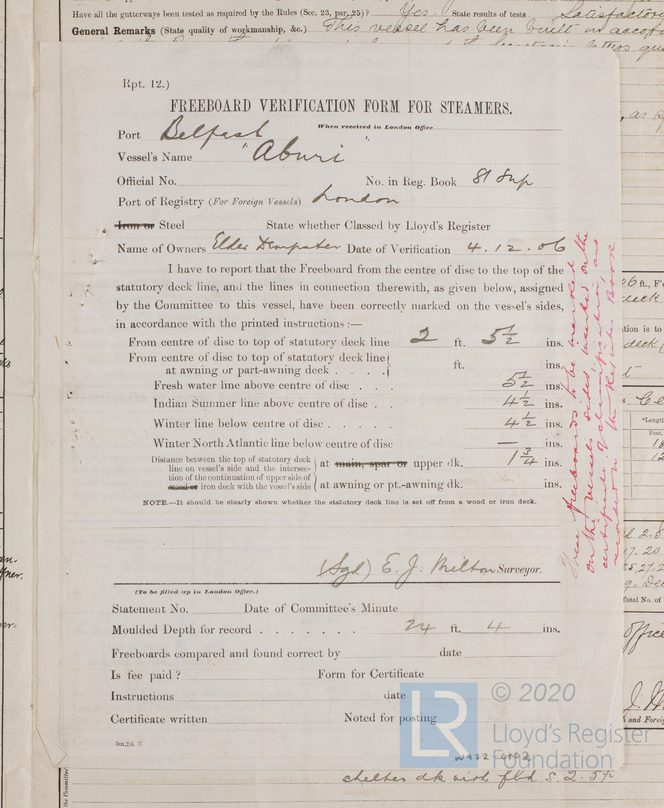 Have all the gutterways been tested as required by the Rules (Sec. 23, par. 25)? Yes State results of tests Satisfactory
General Remarks (State quality of workmanship, &c.) This vessel has been built in
Rpt. 12.)
FREEBOARD VERIFICATION FORM FOR STEAMERS.
When received in London Office
Port Belfast
Vessel's Name "Aburi
Official No. No. in Reg. Book 81 Sup
Port of Registry (For Foreign Vessels) London
Iron or Steel State whether Classed by Lloyd's Register
Name of Owners Elder Dempster Date of Verification 4.12.06
I have to report that the Freeboard from the centre of disc to the top of the
statutory deck line, and the lines in connection therewith, as given below, assigned
by the Committee to this vessel, have been correctly marked on the vessel's sides,
in accordance with the printed instructions :—
From centre of disc to top of statutory deck line 2 ft. 5½ ins.
From centre of disc to top of statutory deck line
at awning or part-awning deck . . . . ft. ins.
Fresh water line above centre of disc . . . 5½ ins.
Indian Summer line above centre of disc . 4½ ins.
Winter line below centre of disc . . . . . 4½ ins.
Winter North Atlantic line below centre of disc — ins.
Distance between the top of statutory deck
line on vessel's side and the intersec-
tion of the continuation of upper side of
wood or iron deck with the vessel's side
at main, spar or upper dk. 1¾ ins.
at awning or pt.-awning dk. ins.
NOTE.—It should be clearly shown whether the statutory deck line is set off from a wood or iron deck.
(Sgd) E. J. Milton Surveyor.
(To be filled up in London Office.)
Statement No. Date of Committee's Minute
Moulded Depth for record . . . . . . . 24 ft. 4 ins.
Freeboards compared and found correct by date
Is fee paid ? Form for Certificate
Instructions date
Certificate written Noted for posting
These freeboards to be marked
on the vessel's sides, inserted on the
certificate of classification, and
recorded in the Register Book
LR
© 2020
Lloyd's Register
Foundation
W972-0192
shelter dk with fbd s. 2.5½